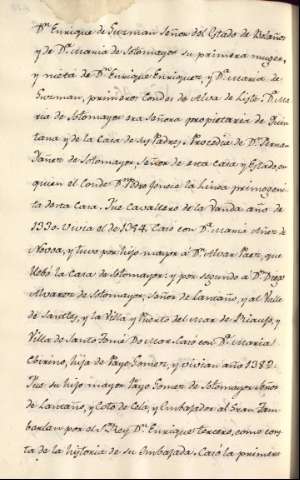 Dn Enrique de Guzman Señor del Estado de Bolaños
y de Da Maria de Sotomayor su primera muger,
y nieta de Dn Enrique Enriquez y Da Maria de
Guzman, primeros Condes de Alva de Liste: Da Ma
ria de Sotomayor era Señora propietaria de Quin
tana y de la Casa de sus Padres. Procedia de Dn Fernan
Yañez de Sotomayor, Señor de esta Casa y Estado, en
quien el Conde Dn Pedro la Linea primogeni
ta desta Casa. Fue Cavallero de la Vanda año de
1330. Vivia el de 1354. Casó con Da Maria Añez de
Novoa, y tuvo por hijo mayor á Dn Alvar Paez, que
llebó la Casa de Sotomayor: y por segundo a Dn Diego
Alvarez de Sotomayor, Señor de Lantaño, y al Valle
de y la Villa y Puerto del Mar de
Villa de Santo Tomé Do Mar. Casó con Da Maria
Chirino, hija de Payo Gomez, y vivian año 1382.
Fue su hijo mayor Payo Gomez de Sotomayor Señor
de Lantaño, y Coto de Cela, y Embajador al Gran Tam
berlan por el Sr Rey Dn Enrique tercero, como cons
ta de la historia de su Embajada. Casó la primera